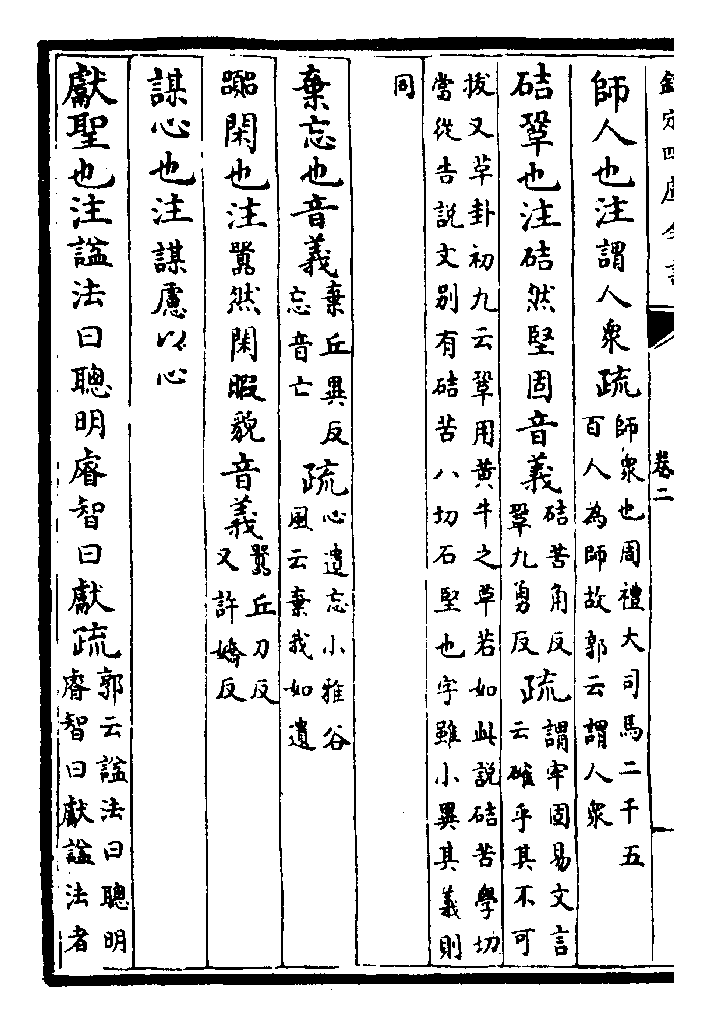 欽定四庫全書 卷二
師人也注謂人衆疏師衆也周禮大司馬二千五
百人為師故郭云謂人衆
硈鞏也注硈然堅固音義硈苦角反
鞏九勇反疏謂牢固易文言
云確乎其不可
拔又革卦初九云鞏用黃牛之革若如此説硈苦學切
當從告説文别有硈苦八切石堅也字雖小異其義則
同
棄忘也音義棄丘異反
忘音亡疏心遺忘小雅谷
風云棄我如遺
嚻閑也注嚻然閑暇貌音義嚻丘刀反
又許嬌反
謀心也注謀慮以心
獻聖也注諡法曰聰明睿智曰獻疏郭云諡法曰聰明
睿智曰獻諡法者